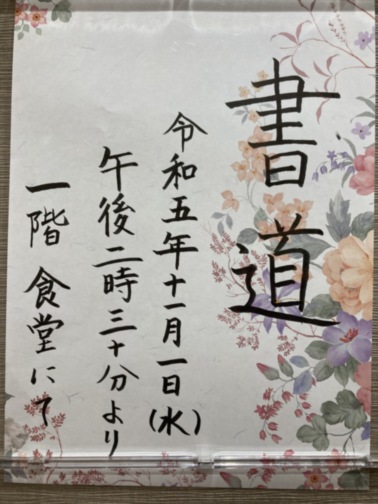 書道
令和五年十一月一日(水)
午後二時三十分より
一階 食堂にて